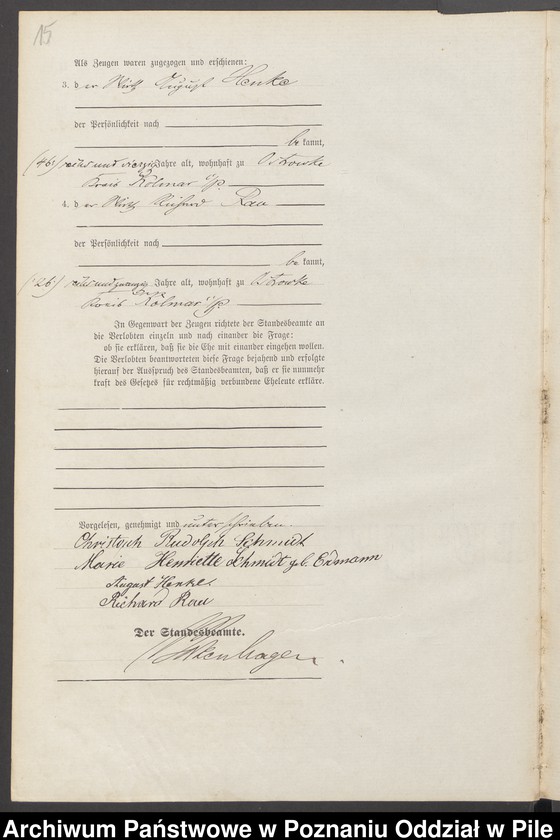 15
Als Zeugen waren zugezogen und erschienen:
3. der Wirth August Henke
der Persönlichkeit nach
bekannt,
(46) sechs und vierzig Jahre alt, wohnhaft zu Ostrowke
Kreis Kolmar i/p
4. der Wirth Richard Rau
der Persönlichkeit nach
bekannt,
(26) sechs und zwanzig Jahre alt, wohnhaft zu Ostrowke
Kreis Kolmar i/p
In Gegenwart der Zeugen richtete der Standesbeamte an
die Verlobten einzeln und nach einander die Frage:
ob sie erklären, daß sie die Ehe mit einander eingehen wollen.
Die Verlobten beantworteten diese Frage bejahend und erfolgte
hierauf der Ausspruch des Standesbeamten, daß er sie nunmehr
kraft des Gesetzes für rechtmäßig verbundene Eheleute erkläre.
Vorgelesen, genehmigt und unterschrieben.
Christoph Rudolph Schmidt
Marie Henriette Schmidt geb. Erdmann
August Henke
Richard Rau
Der Standesbeamte.
Archiwum Państwowe w Poznaniu Oddział w Pile